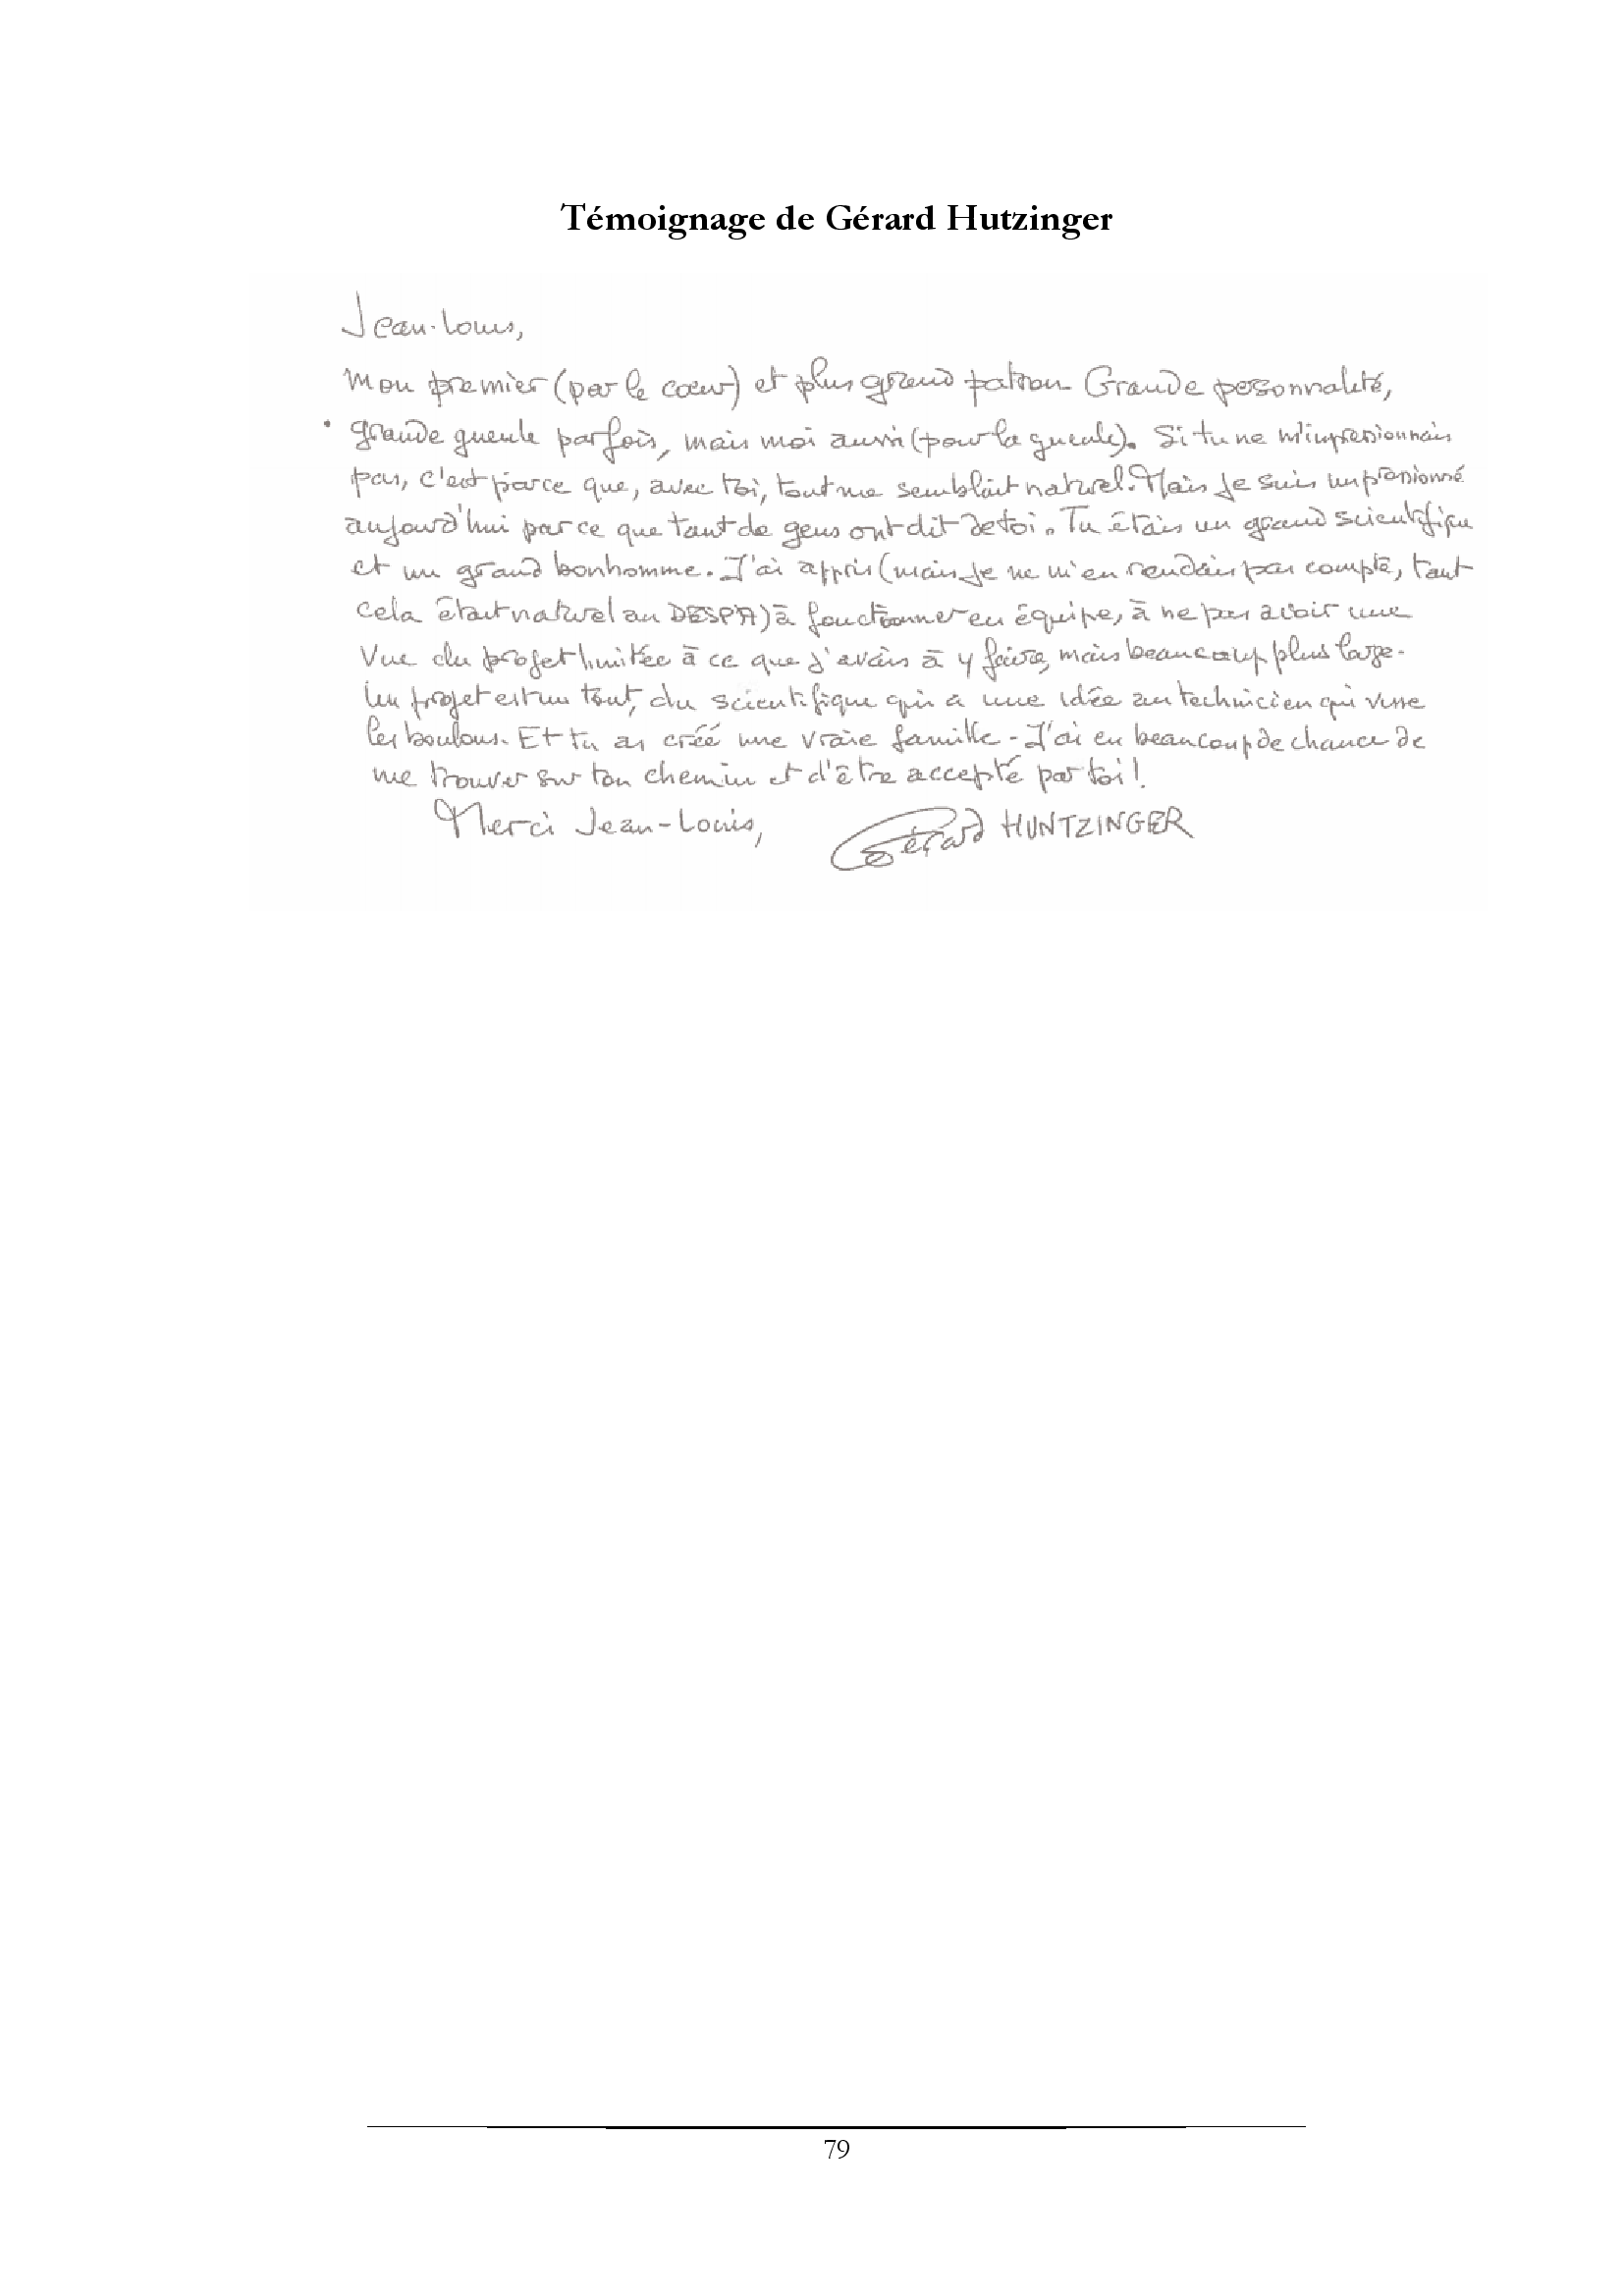 Témoignage de Gérard Hutzinger
Jean-Louis,
Mon premier (par le cœur) et plus grand patron. Grande pesonnalité,
grande gueule parfois, mais moi aussi (pour la gueule). Si tu ne m'impressionnais
pas, c'est parce que, avec toi, tout me semblait naturel. Mais je suis impressionné
aujourd'hui par ce que tant de gens ont dit de toi. Tu étais un grand scientifique
et un grand bonhomme. J'ai appris (mais je ne m'en rendais pas compte, tant
cela était naturel au DESPA) à fonctionner en équipe, à ne pas avoir une
vue du projet limitée à ce que j'avais à y faire, mais beaucoup plus large.
Un projet est un tout, du scientifique qui a une idée au technicien qui visse
les boulons. Et tu as créé une vraie famille - J'ai eu beaucoup de chance de
me trouver sur ton chemin et d'être accepté par toi !
Merci Jean-Louis, Gérard HUNTZINGER
79